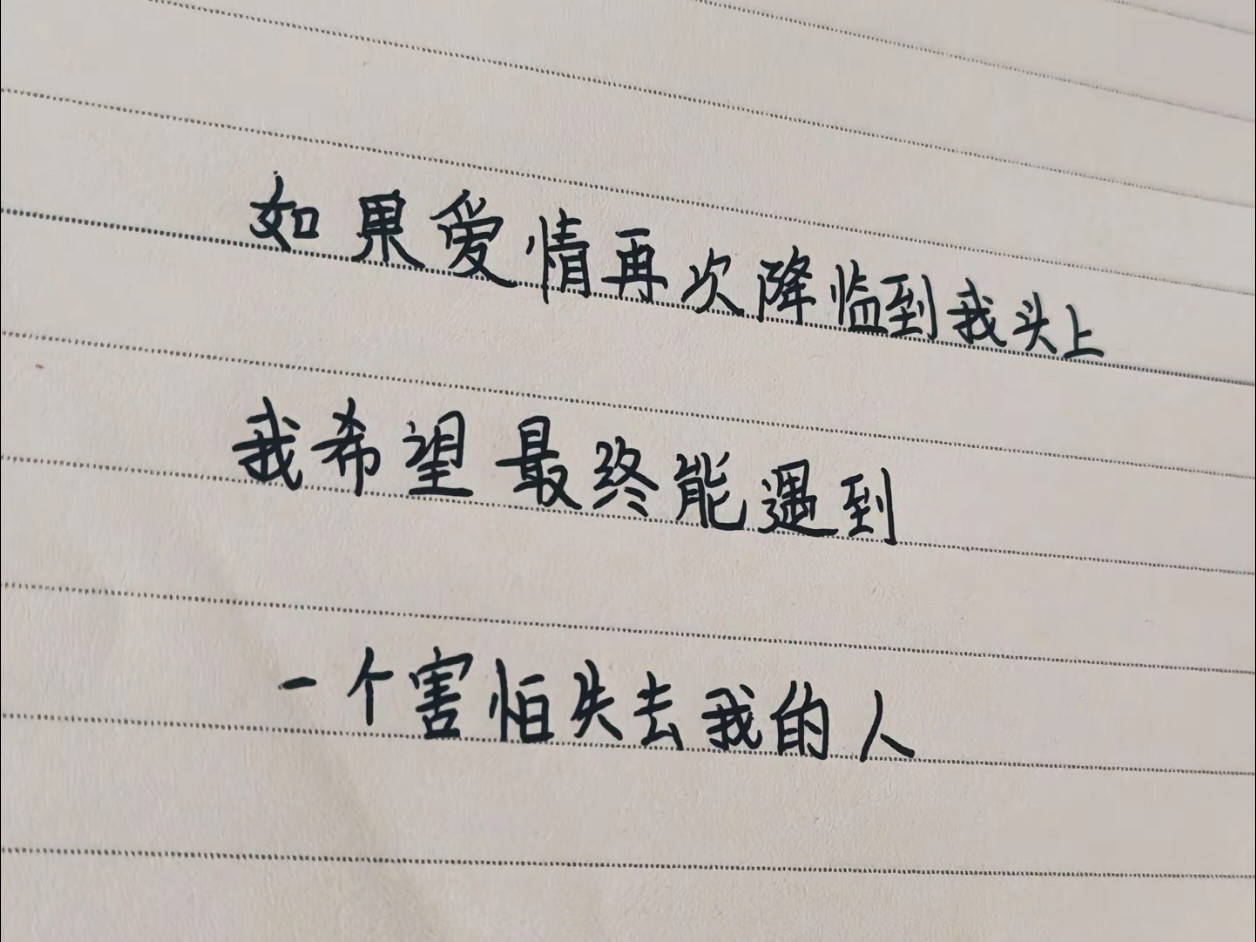 如果爱情再次降临到我头上
我希望最终能遇到
一个害怕失去我的人